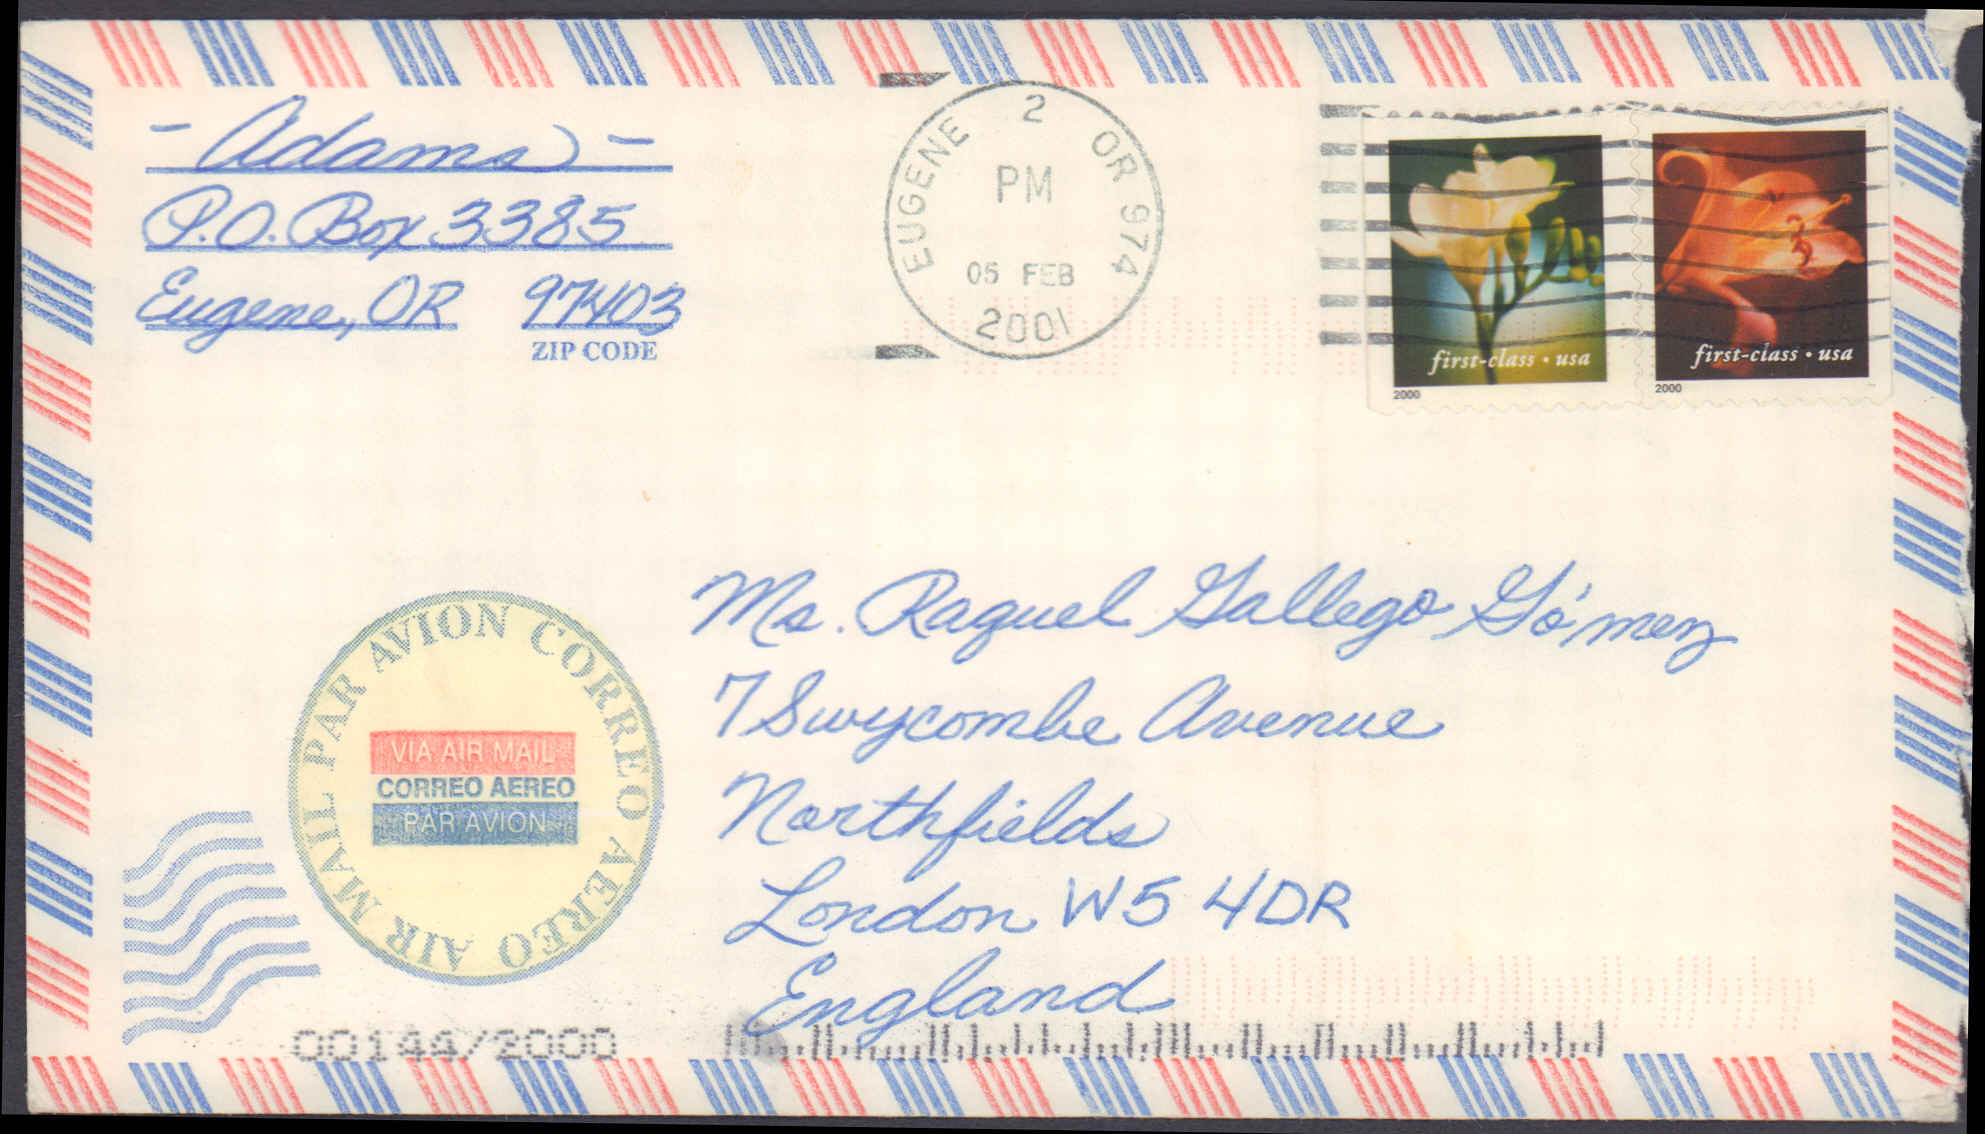 - Adams -
P.O. Box 3385
Eugene, OR 97403
ZIP CODE
EUGENE OR 974
2
PM
05 FEB
2001
first-class • usa
2000
first-class • usa
2000
AIR MAIL PAR AVION CORREO AEREO
VIA AIR MAIL
CORREO AEREO
PAR AVION
Ms. Raquel Gallego Gómez
7 Swycombe Avenue
Northfields
London W5 4DR
England
00144/2000